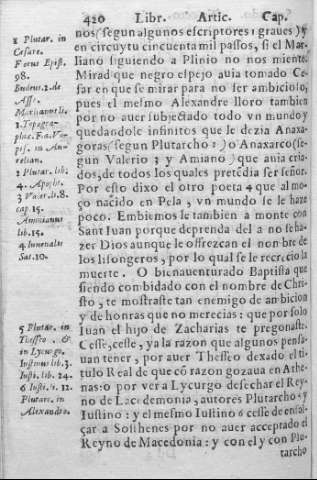 420 Libr. Artic. Cap.
nos (segun algunos escriptores 1 graues) y
en circuytu cincuenta mil passos, si el Mar-
liano siguiendo a Plinio no nos miente.
Mirad que negro espejo auia tomado Ce-
sar en que se mirar para no ser ambicioso,
pues el mesmo Alexandre lloro tambien
por no auer subjectado todo vn mundo y
quedandole infinitos que le dezia Anaxa-
goras (segun Plutarcho 2) o Anaxarco (se-
gun Valerio 3 y Amiano) que auia cria-
dos, de todos los quales pretedia ser señor.
Por esto dixo el otro poeta 4 que al mo-
ço nacido en Pela, vn mundo se le haze
poco. Embiemosle tambien a monte con
Sant Iuan porque deprenda del a no se ha-
zer Dios aunque le offrezcan el nonbre de
los lisongeros, por lo qual se le recrecio la
muerte. O bienauenturado Baptista que
siendo combidado con el nombre de Chri-
sto, te mostraste tan enemigo de ambicion
y de honras que no merecias: que por solo
Iuan el hijo de Zacharias te pregonaste.
Cesse, cesse, ya la razon que algunos pensa-
uan tener, por auer Theseo dexado el ti-
tulo Real de que cō razon gozaua en Athe-
nas: o por ver a Lycurgo desechar el Rey-
no de Lacedemonia, autores Plutarcho 5 y
Iustino: y el mesmo Iustino 6 cesse de ensal-
çar a Sosthenes por no auer acceptado el
Reyno de Macedonia: y con el y con Plu-
tarcho
1 Plutar. in
Cesare.
Fotus Epist.
98.
Budeus. 2. de
Asse.
Marlianus li.
2. Topogra-
phiae.
2 Plutar. lib.
4. Apopht.
3 Valer. li. 8.
cap. 15.
Ammianus
lib. 15.
4 Iuuenalis
Sat. 10.
5 Plutar. in
Theseo. &
in Lycurgo.
Iustinus lib. 3.
6 Iusti. li. 12.
Plutarc. in
Alexandro.